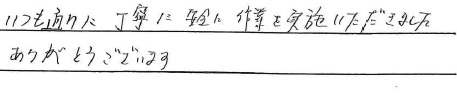 いつも通りに 丁寧に 安全に 作業を実施いただきました
ありがとうございます